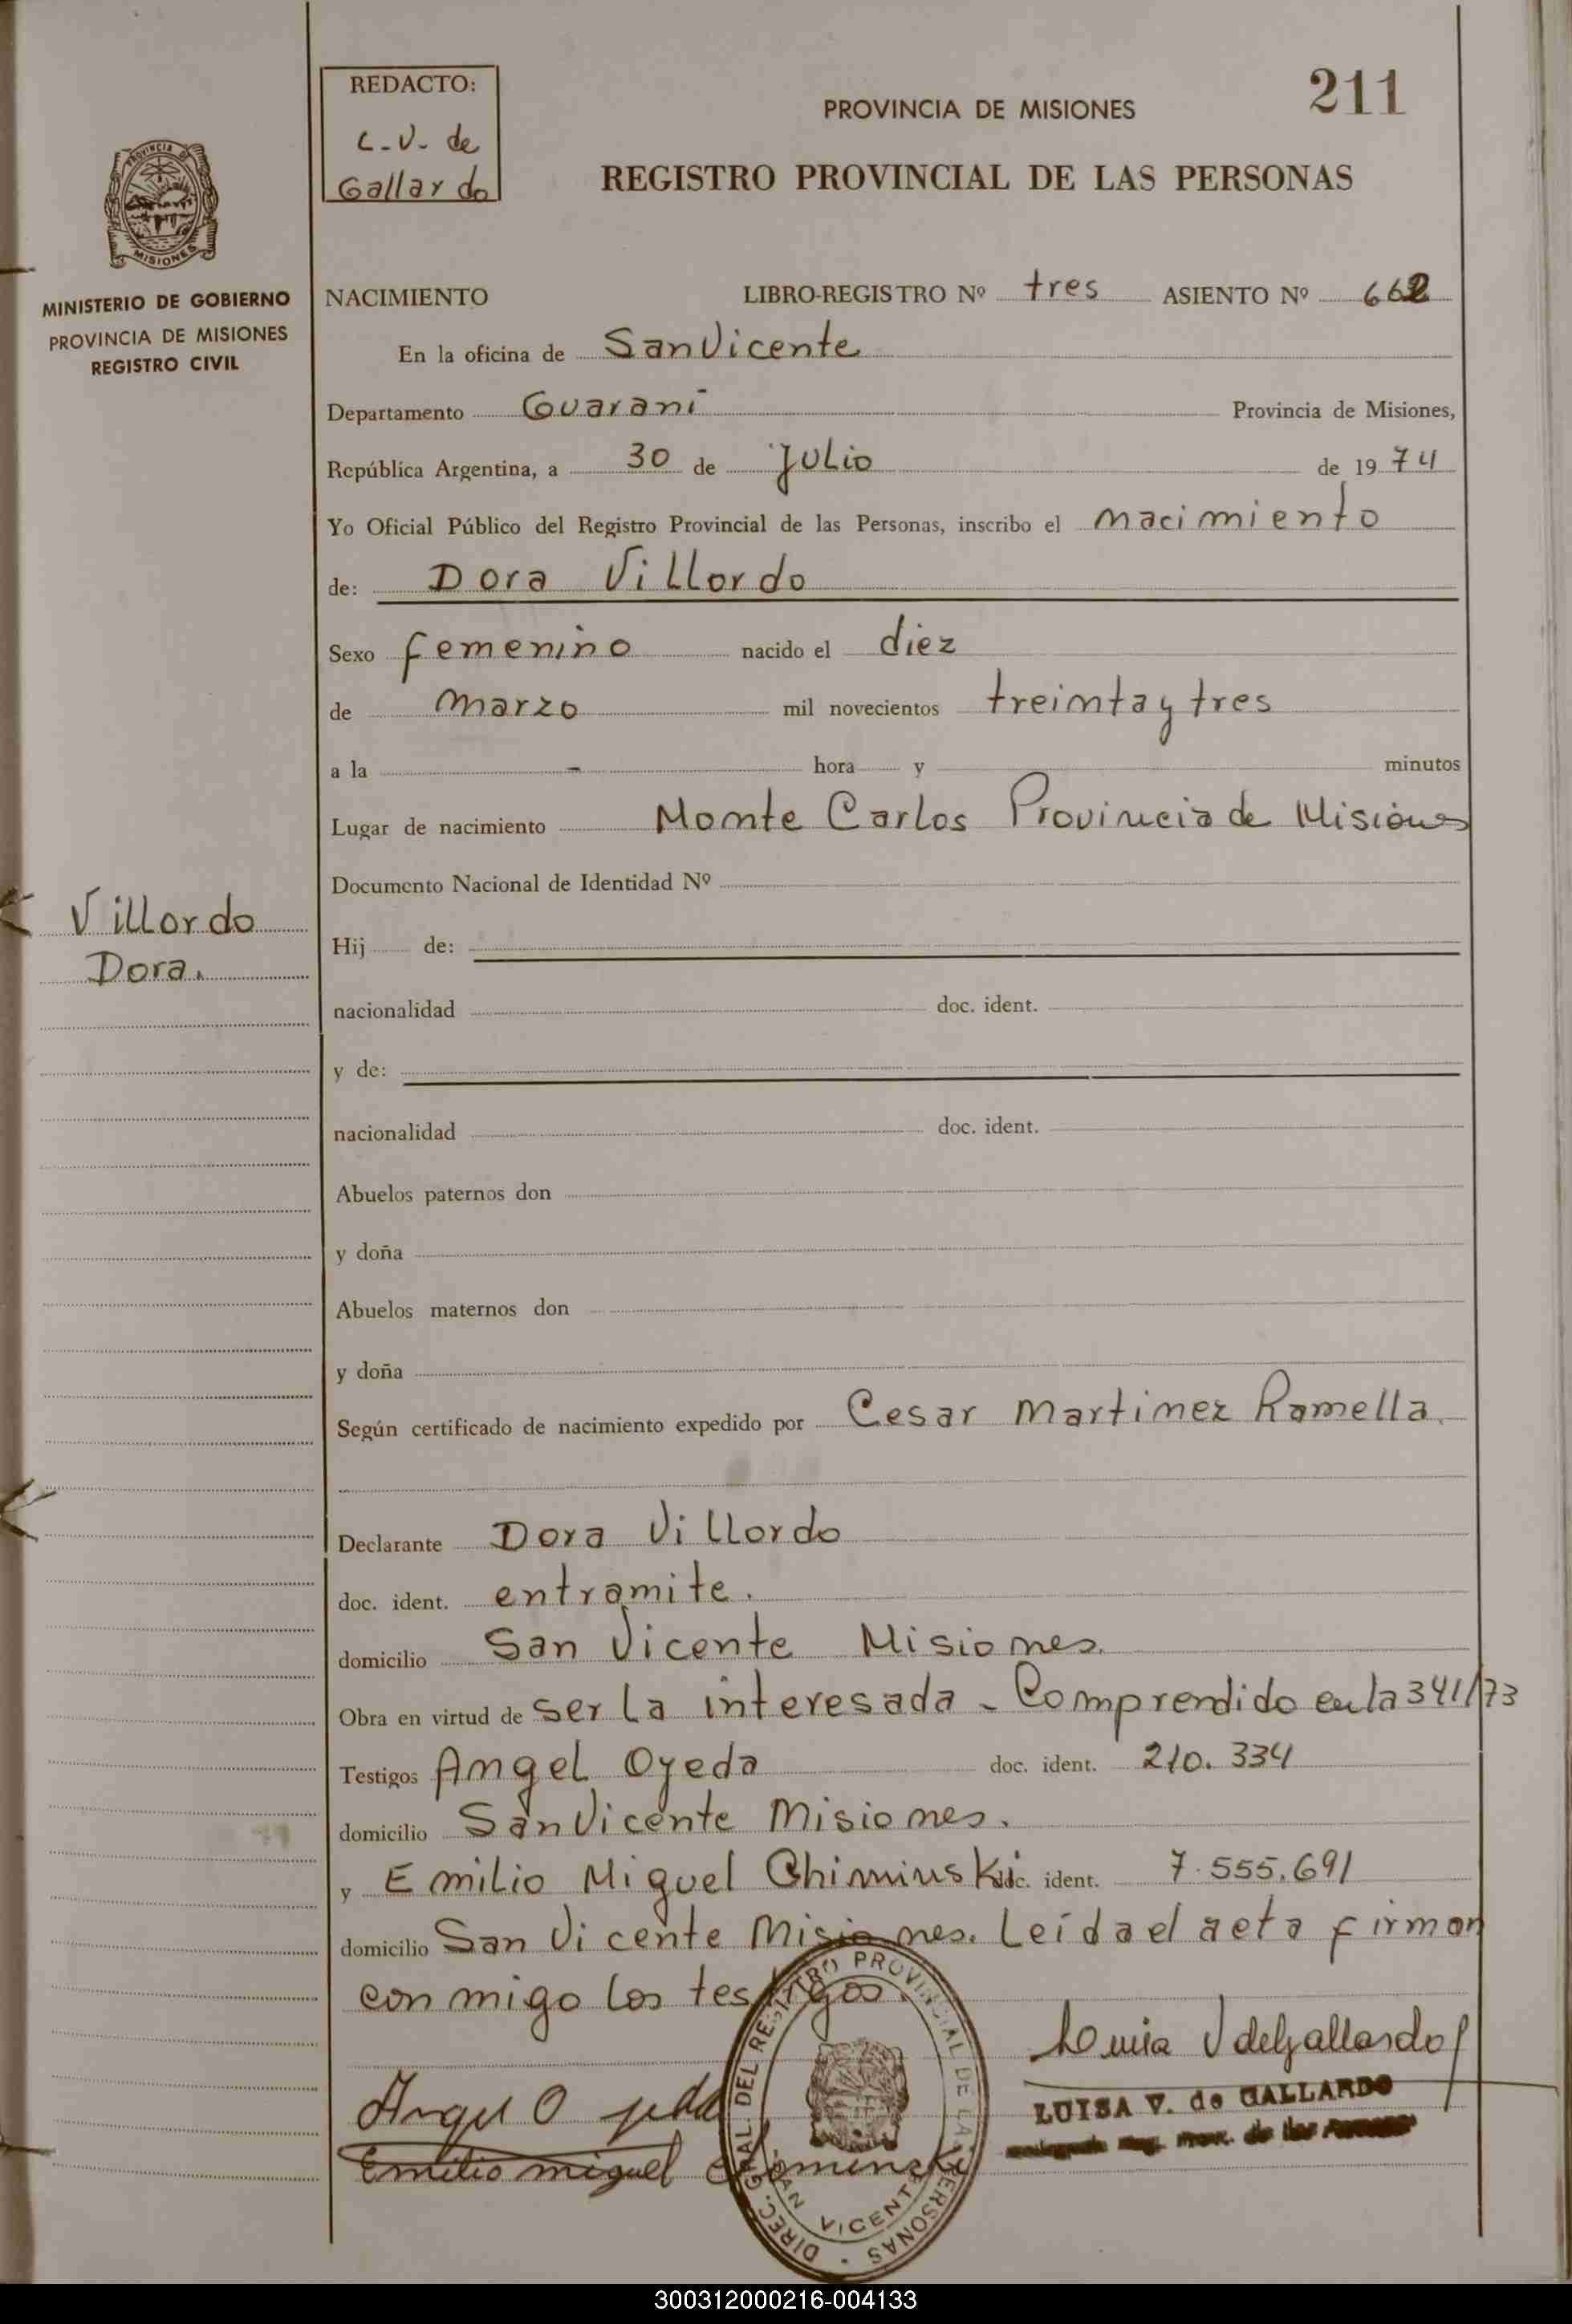 REDACTO:
L-V- de
Gallardo
PROVINCIA DE MISIONES
211
REGISTRO PROVINCIAL DE LAS PERSONAS
PROVINCIA DE
MISIONES
MINISTERIO DE GOBIERNO
PROVINCIA DE MISIONES
REGISTRO CIVIL
NACIMIENTO LIBRO-REGISTRO Nº tres ASIENTO Nº 662
En la oficina de San Vicente
Departamento Guarani Provincia de Misiones,
República Argentina, a 30 de Julio de 1974
Yo Oficial Público del Registro Provincial de las Personas, inscribo el nacimiento
de: Dora Villordo
Sexo femenino nacido el diez
de marzo mil novecientos treinta y tres
a la - hora y minutos
Lugar de nacimiento Monte Carlos Provincia de Misiones
Documento Nacional de Identidad Nº
Villordo
Dora.
Hij de:
nacionalidad doc. ident.
y de:
nacionalidad doc. ident.
Abuelos paternos don
y doña
Abuelos maternos don
y doña
Según certificado de nacimiento expedido por Cesar Martinez Ramella.
Declarante Dora Villordo
doc. ident. entramite.
domicilio San Vicente Misiones.
Obra en virtud de ser la interesada - Comprendido en la 341/73
Testigos Angel Ojeda doc. ident. 210.334
domicilio San Vicente Misiones.
y Emilio Miguel Chiminski doc. ident. 7.555.691
domicilio San Vicente Misiones. Leída el acta firman
con migo los testigos.
Luisa V de Gallardo
Angel Ojeda
LUISA V. de GALLARDO
Emilio miguel
DIREC. GRAL. DEL REGISTRO PROVINCIAL DE LAS PERSONAS
SAN VICENTE
300312000216-004133